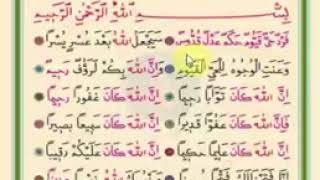 بِسْمِ اللّٰهِ الرَّحْمٰنِ الرَّحِيْمِ
فَرْدٌ حَیٌّ قَیُّوْمٌ حَكَمٌ عَدْلٌ قُدُّوْسٌ سَيَجْعَلُ اللّٰهُ بَعْدَ عُسْرٍ يُسْرًا
وَعَنَتِ الْوُجُوْهُ لِلْحَيِّ الْقَيُّوْمِ وَاِنَّ اللّٰهَ بِكُمْ لَرَؤُفٌ رَحِيْمٌ
اِنَّ اللّٰهَ كَانَ تَوَّابًا رَحِيْمًا اِنَّ اللّٰهَ كَانَ غَفُوْرًا رَحِيْمًا
اِنَّ اللّٰهَ كَانَ عَفُوًّا قَدِيْرًا اِنَّ اللّٰهَ كَانَ سَمِيْعًا بَصِيْرًا
اِنَّ اللّٰهَ كَانَ عَلِيْمًا حَكِيْمًا اِنَّ اللّٰهَ كَانَ عَلَيْكُمْ رَقِيْبًا